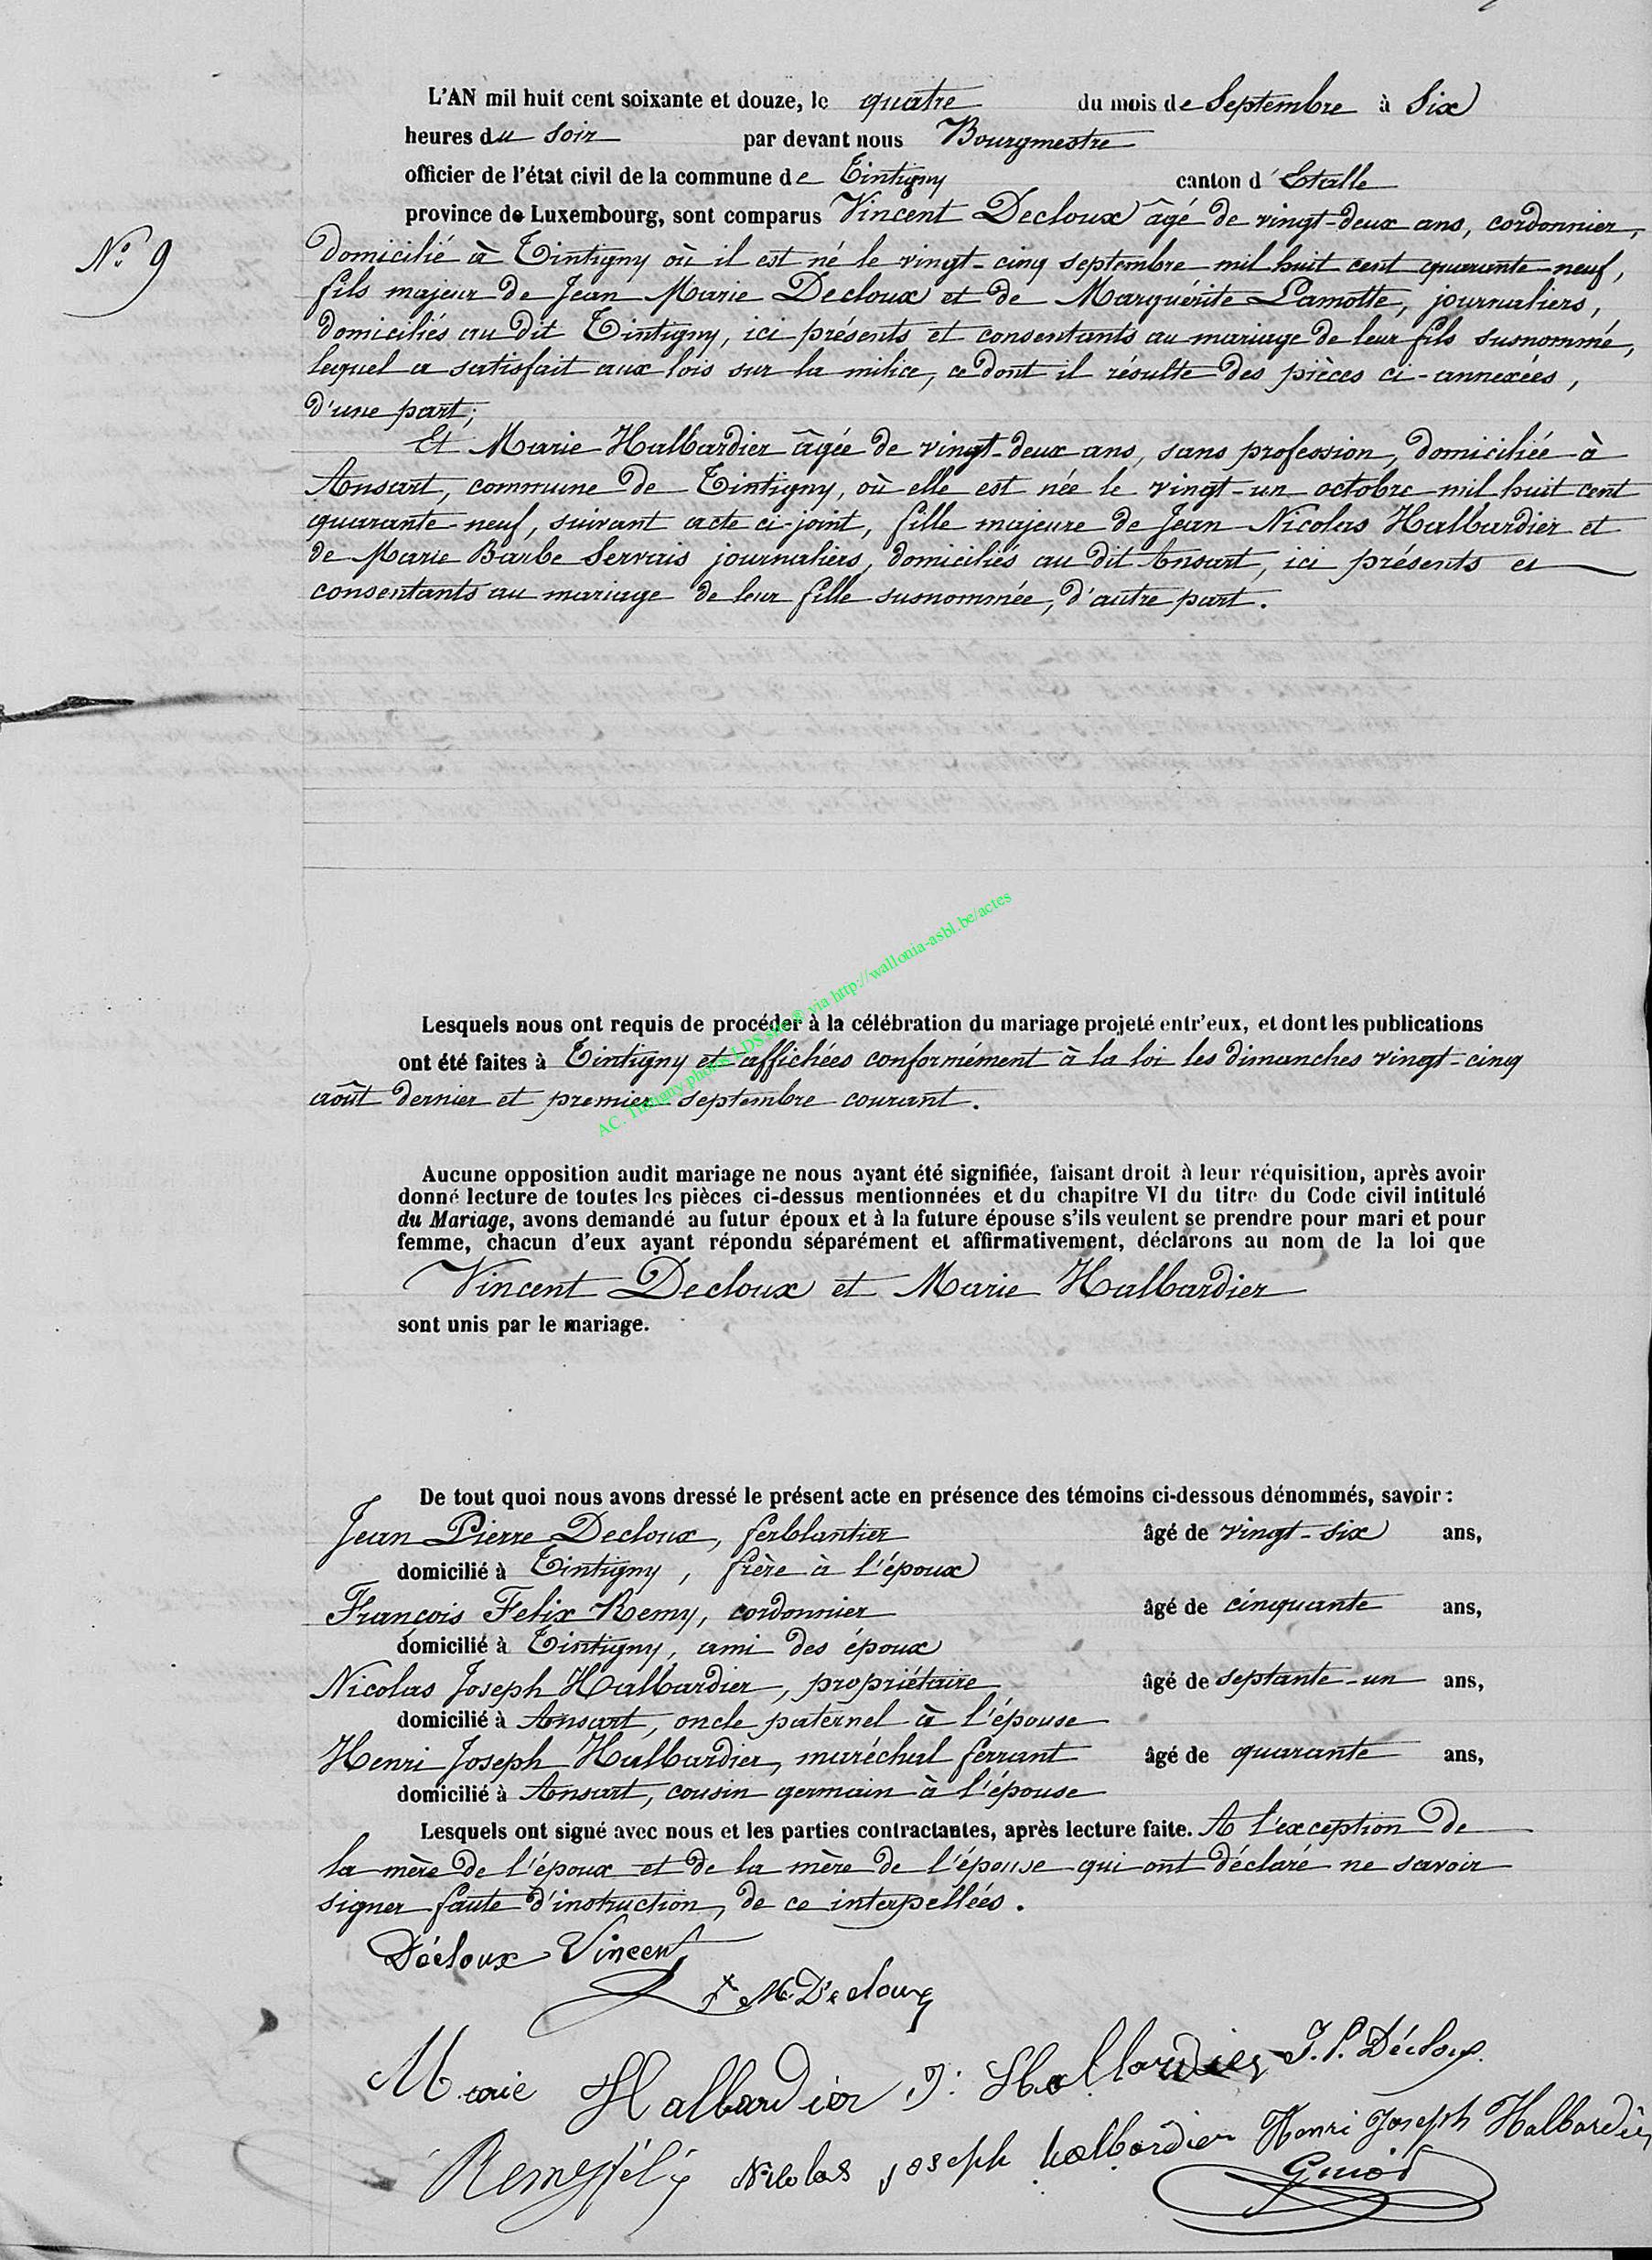 L'AN mil huit cent soixante et douze, le quatre du mois de Septembre à Six
heures du Soir par devant nous Bourgmestre
officier de l'état civil de la commune de Tintigny canton d'Etalle
province de Luxembourg, sont comparus Vincent Decloux âgé de vingt-deux ans, cordonnier,
N° 9
domicilié à Tintigny où il est né le vingt-cinq septembre mil huit cent quarante-neuf,
fils majeur de Jean Marie Decloux et de Marguérite Lamotte, journaliers,
domiciliés au dit Tintigny, ici présents et consentants au mariage de leur fils susnommé,
lequel a satisfait aux lois sur la milice, ce dont il résulte des pièces ci-annexées,
d'une part;
Et Marie Halbardier âgée de vingt-deux ans, sans profession, domiciliée à
Ansart, commune de Tintigny, où elle est née le vingt-un octobre mil huit cent
quarante-neuf, suivant acte ci-joint, fille majeure de Jean Nicolas Halbardier et
de Marie Barbe Servais journaliers, domiciliés au dit Ansart, ici présents et
consentants au mariage de leur fille susnommée, d'autre part.
AC. Tintigny photos LDS site & via http://wallonia-asbl.be/actes
Lesquels nous ont requis de procéder à la célébration du mariage projeté entr'eux, et dont les publications
ont été faites à Tintigny et affichées conformément à la loi les dimanches vingt-cinq
août dernier et premier septembre courant.
Aucune opposition audit mariage ne nous ayant été signifiée, faisant droit à leur réquisition, après avoir
donné lecture de toutes les pièces ci-dessus mentionnées et du chapitre VI du titre du Code civil intitulé
du Mariage, avons demandé au futur époux et à la future épouse s'ils veulent se prendre pour mari et pour
femme, chacun d'eux ayant répondu séparément et affirmativement, déclarons au nom de la loi que
Vincent Decloux et Marie Halbardier
sont unis par le mariage.
De tout quoi nous avons dressé le présent acte en présence des témoins ci-dessous dénommés, savoir :
Jean Pierre Decloux, ferblantier âgé de vingt-six ans,
domicilié à Tintigny, frère à l'époux
François Felix Remy, cordonnier âgé de cinquante ans,
domicilié à Tintigny, ami des époux
Nicolas Joseph Halbardier, propriétaire âgé de septante-un ans,
domicilié à Ansart, oncle paternel à l'épouse
Henri Joseph Halbardier, maréchal ferrant âgé de quarante ans,
domicilié à Ansart, cousin germain à l'épouse
Lesquels ont signé avec nous et les parties contractantes, après lecture faite. A l'exception de
la mère de l'époux et de la mère de l'épouse qui ont déclaré ne savoir
signer faute d'instruction, de ce interpellées.
Décloux Vincent
M. Decloux
Marie Halbardier J: Halbardier J. P. Décloux
Remy féli Nicolas joseph halbardier Henri Joseph Halbardier